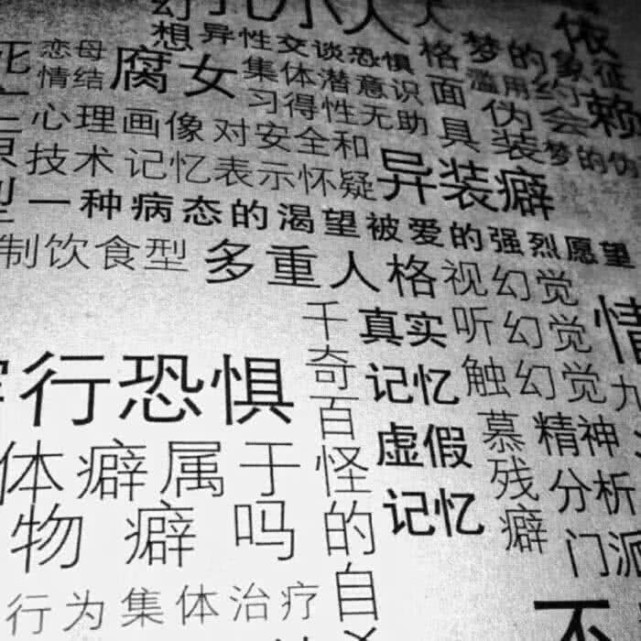 想 异性交谈恐惧 格 梦的象征
恋母情结 腐女 集体潜意识 面 滥用约会
习得性无助 具 伪装 依赖
心理画像 对安全和
技术 记忆表示怀疑 异装癖 梦的伪
一种病态的渴望被爱的强烈愿望
制饮食型 多重人格 视幻觉
千奇百怪的自 真实记忆 听幻觉
行恐惧 触幻觉
虚假记忆 慕残癖 精神分析门派
体癖属于
物癖吗
行为集体治疗